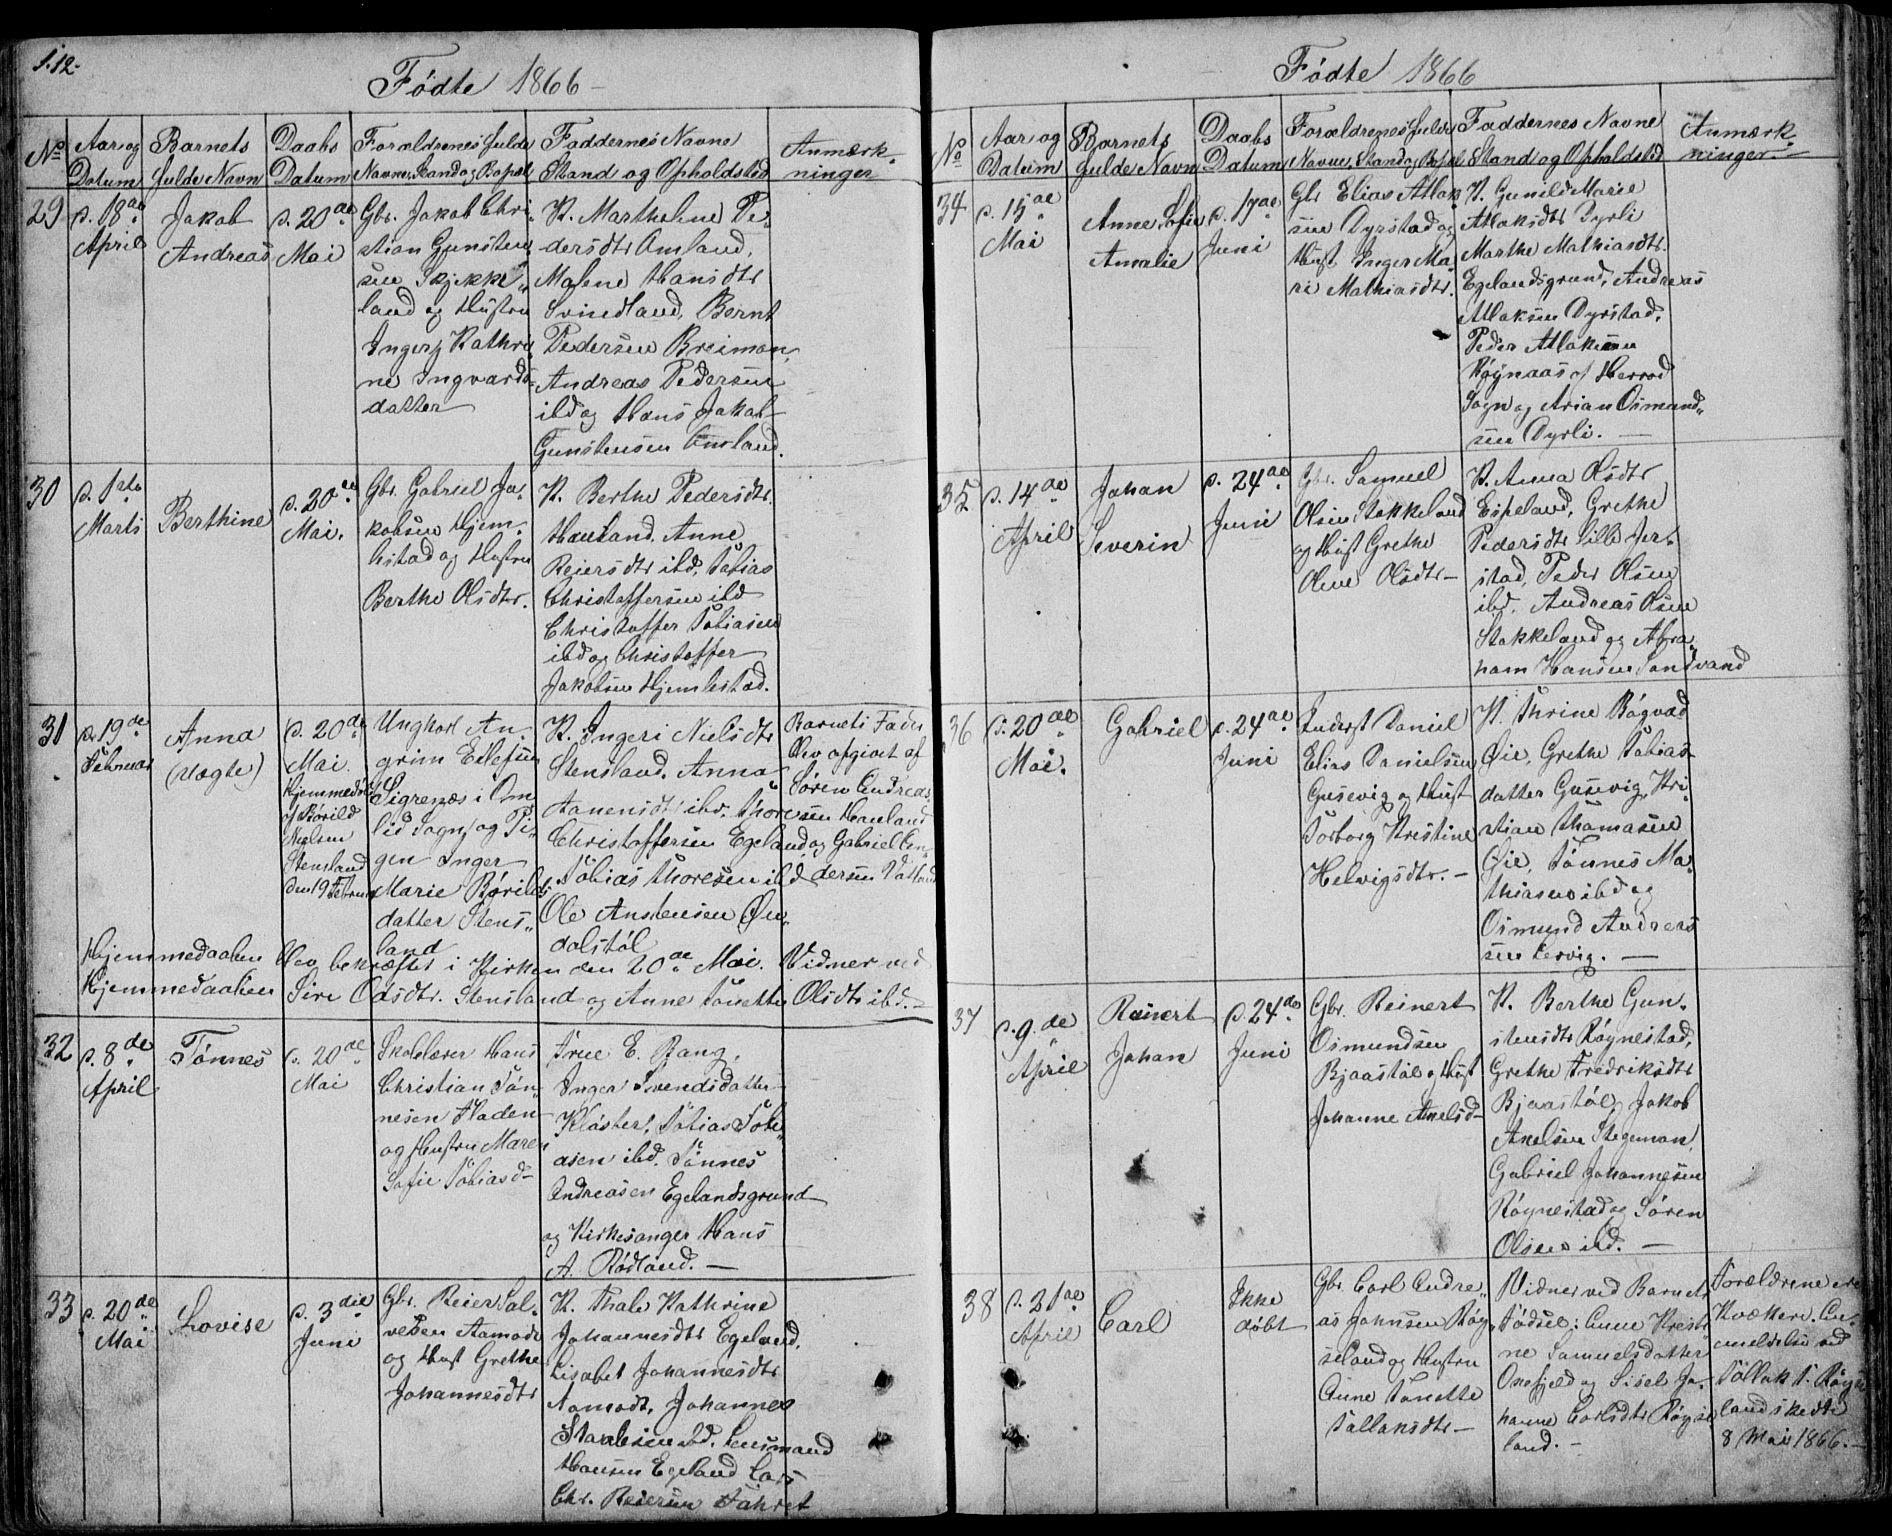 S. 12.
Fødte 1866 –
No
Aar og
Datum
Barnets
fulde Navn
Daabs
Datum
Forældrenes fulde
Navne, Stand og Bopæl
Faddernes Navne
Stand og Opholdsted
Anmærk-
ninger
29
d. 18de
April
Jakob
Andreas
d. 20de
Mai
Gbr. Jakob Chri-
stian Gunsten-
sen Skjekke-
land og Hustru
Ingerj Kathri-
ne Ingvards-
datter
K. Marthelene Pe-
dersdtr Omland,
Malene Hansdtr
Svindland, Bernt
Pedersen Breiman,
Andreas Pedersen
ibd og Hans Jakob
Gunstensen Omland.
30
d. 1ste
Marts
Berthine
d. 20de
Mai.
Gbr. Gabriel Ja-
kobsen Hjem-
listad og Hustru
Berthe Olsdtr.
K. Berthe Pedersdtr.
Hauland. Anne
Reiersdtr ibd, Tobias
Christoffersen ibd
Christoffer Tobiasen
ibd og Christoffer
Jakobsen Hjemlistad.
31
d. 19de
Februar
Anna
(Uægte)
d. 20de
Mai.
Hjemmedøbt
af Børild
Nielsen
Stensland
den 19 Februar
Ungkarl An-
grim Eilefsen
Sigrenæs i Om-
lid Sogn, og Pi-
gen Inger
Marie Børilds
datter Stens-
land
K. Ingeri Nielsdtr
Stensland. Anna
Aanensdtr ibd. Thore
Christoffersen Egeland
Tobias Thoresen ibd
Ole Anstensen Øn-
dalstøl
Barnets Fader
blev afgivet af
Søren Andreas-
sen Hauland
og Gabriel An-
dersen Vatland
Hjemmedaaben blev bekræftet i Kirken den 20de Mai. Vidner ved
Hjemmedaaben Sire Odsdtr. Stensland og Anne Tonette Olsdtr ibd. –
32
d. 8de
April
Tønnes
d. 20de
Mai
Skolelærer Hans
Christian Tøn-
nesen Fladen
og Hustru Maren
Sofie Tobiasd–
Frue E. Bang,
Inger Svendsdatter
Kloster, Tobias Tobi-
asen ibd. Tønnes
Andreasen Egelandsgrund
og Kirkesanger Hans
A. Rødland. –
33
d. 20de
Mai
Lovise
d. 3die
Juni
Gbr. Reier Sal-
vesen Aamodt
og Hust Grethe
Johannesdtr
K. Thale Kathrine
Johannesdtr Egeland,
Lisabet Johannesdtr
Aamodt, Johannes
Staalesen ibd. Lensmand
Hansen Egeland Lars
Chr. Reiersen Fahret
Fødte 1866
No
Aar og
Datum
Barnets
fulde Navn
Daabs
Datum
Forældrenes fulde
Navne, Stand og Bopæl
Faddernes Navne
Stand og Opholdsted
Anmærk-
ninger. –
34
d. 15de
Mai
Anne Sofie
Amalie
d. 17de
Juni
Gbr Elias Atlak-
sen Dyrstad og
Hust Inger Ma-
rie Mathiasdtr.
K. Gunild Marie
Atlaksdtr Dyrli
Marthe Mathiasdtr.
Egelandsgrund, Andreas
Atlaksen Dyrstad,
Peder Atlaksen
Røynaas af Herred
Sogn og Arian Osmund-
sen Dyrli. –
35
d. 14de
April
Johan
Severin
d. 24de
Juni
Gbr. Samuel
Olsen Stakkeland
og Hust Grethe
Oline Olsdtr –
K. Anna Olsdtr
Espeland, Grethe
Pedersdtr Lille Jer-
stad, Peder Olsen
ibd. Andreas Olsen
Stakkeland og Abra-
ham Hansen Sandvand
36
d. 20de
Mai.
Gabriel
d. 24de
Juni
Inderst Daniel
Elias Danielsen
Gusevig og Hust
Torborg Kristine
Helvigsdtr. –
K. Thrine Bøgvad
Øie, Grethe Tobias-
datter Gusevig, Kri-
stian Thomasen
Øie, Tønnes Ma-
thiasen ibd og
Osmund Andreas
sen Lervig. –
37
d. 9.de
April
Reinert
Johan
d. 24de
Juni
Gbr. Reinert
Osmundsen
Bjaastøl og Hust
Johanne Axelsd–
K. Berthe Gun-
stensdtr Røynestad,
Grethe Fredriksdtr
Bjaastøl, Jakob
Axelsen Stegeman,
Gabriel Johannesen
Røynestad og Søren
Olsen ibd. –
38
d. 21de
April
Carl
Ikke
døbt
Gbr. Carl Andre-
as Johnsen Røy-
seland og Hustru
Anne Tonette
Tallaksdtr –
Vidner ved Barnets
Fødsel: Anne Kristi-
ne Samuelsdatter
Oxefjeld og Sisel Jo-
hanne Carlsdtr Røyse-
land. –
Forældrene ere
Kvækere. An-
meldelse ved
Tollak T. Røyse-
land skedte
8 Mai 1866. –